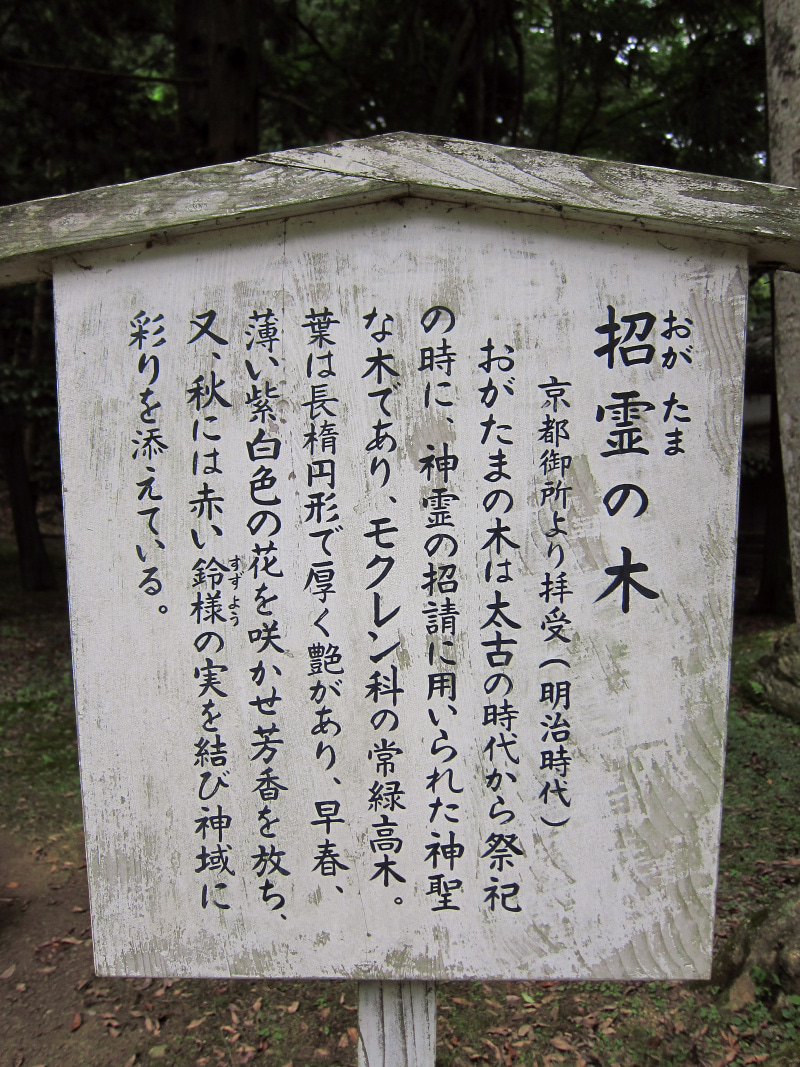 招霊の木
おがたま
京都御所より拝受(明治時代)
おがたまの木は太古の時代から祭祀
の時に、神霊の招請に用いられた神聖
な木であり、モクレン科の常緑高木。
葉は長楕円形で厚く艶があり、早春、
薄い紫白色の花を咲かせ芳香を放ち、
又、秋には赤い鈴様の実を結び神域に
すずよう
彩りを添えている。